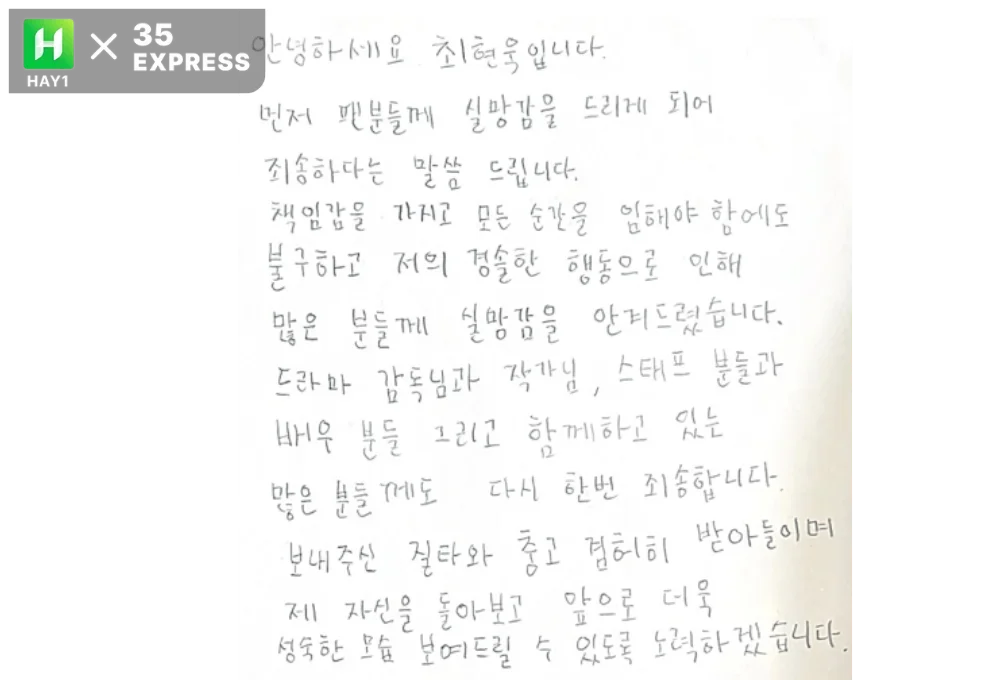 HAY1
35
EXPRESS
안녕하세요 최현욱입니다.
먼저 팬분들께 실망감을 드리게 되어
죄송하다는 말씀 드립니다.
책임감을 가지고 모든 순간을 임해야 함에도
불구하고 저의 경솔한 행동으로 인해
많은 분들께 실망감을 안겨드렸습니다.
드라마 감독님과 작가님, 스태프 분들과
배우 분들 그리고 함께하고 있는
많은 분들께도 다시 한번 죄송합니다.
보내주신 질타와 충고 겸허히 받아들이며
제 자신을 돌아보고 앞으로 더욱
성숙한 모습 보여드릴 수 있도록 노력하겠습니다.